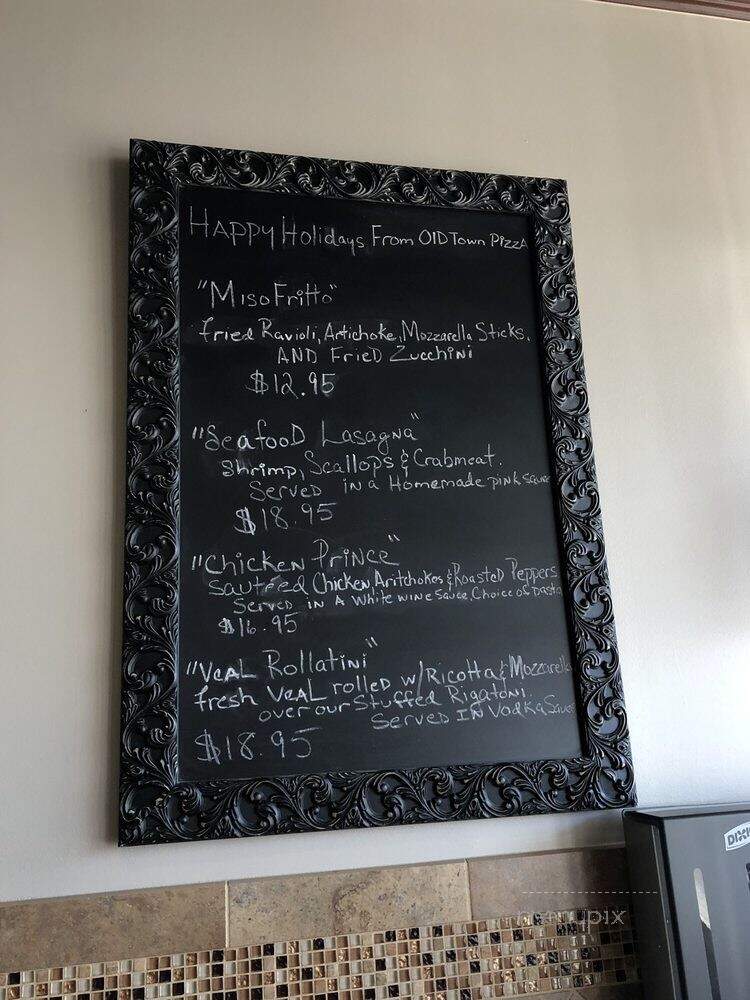 HAPPY Holidays From OlD Town PizzA
"Miso Fritto"
fried Ravioli, Artichoke, Mozzarella Sticks,
AND FrieD Zucchini
$12.95
"SeafooD Lasagna"
Shrimp, Scallops & Crabmeat.
Served in a Homemade pink sauce
$18.95
"Chicken Prince"
Sauteed Chicken Aritchokes & Roasted Peppers
Served in A White wine Sauce, Choice of Pasta
$16.95
"VeAL Rollatini"
fresh VeAL rolled w/Ricotta & Mozzarella
over our Stuffed Rigatoni.
Served IN Vodka Sauce
$18.95
DIXIE
menupix